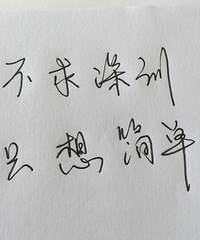 不求深圳
只想简单